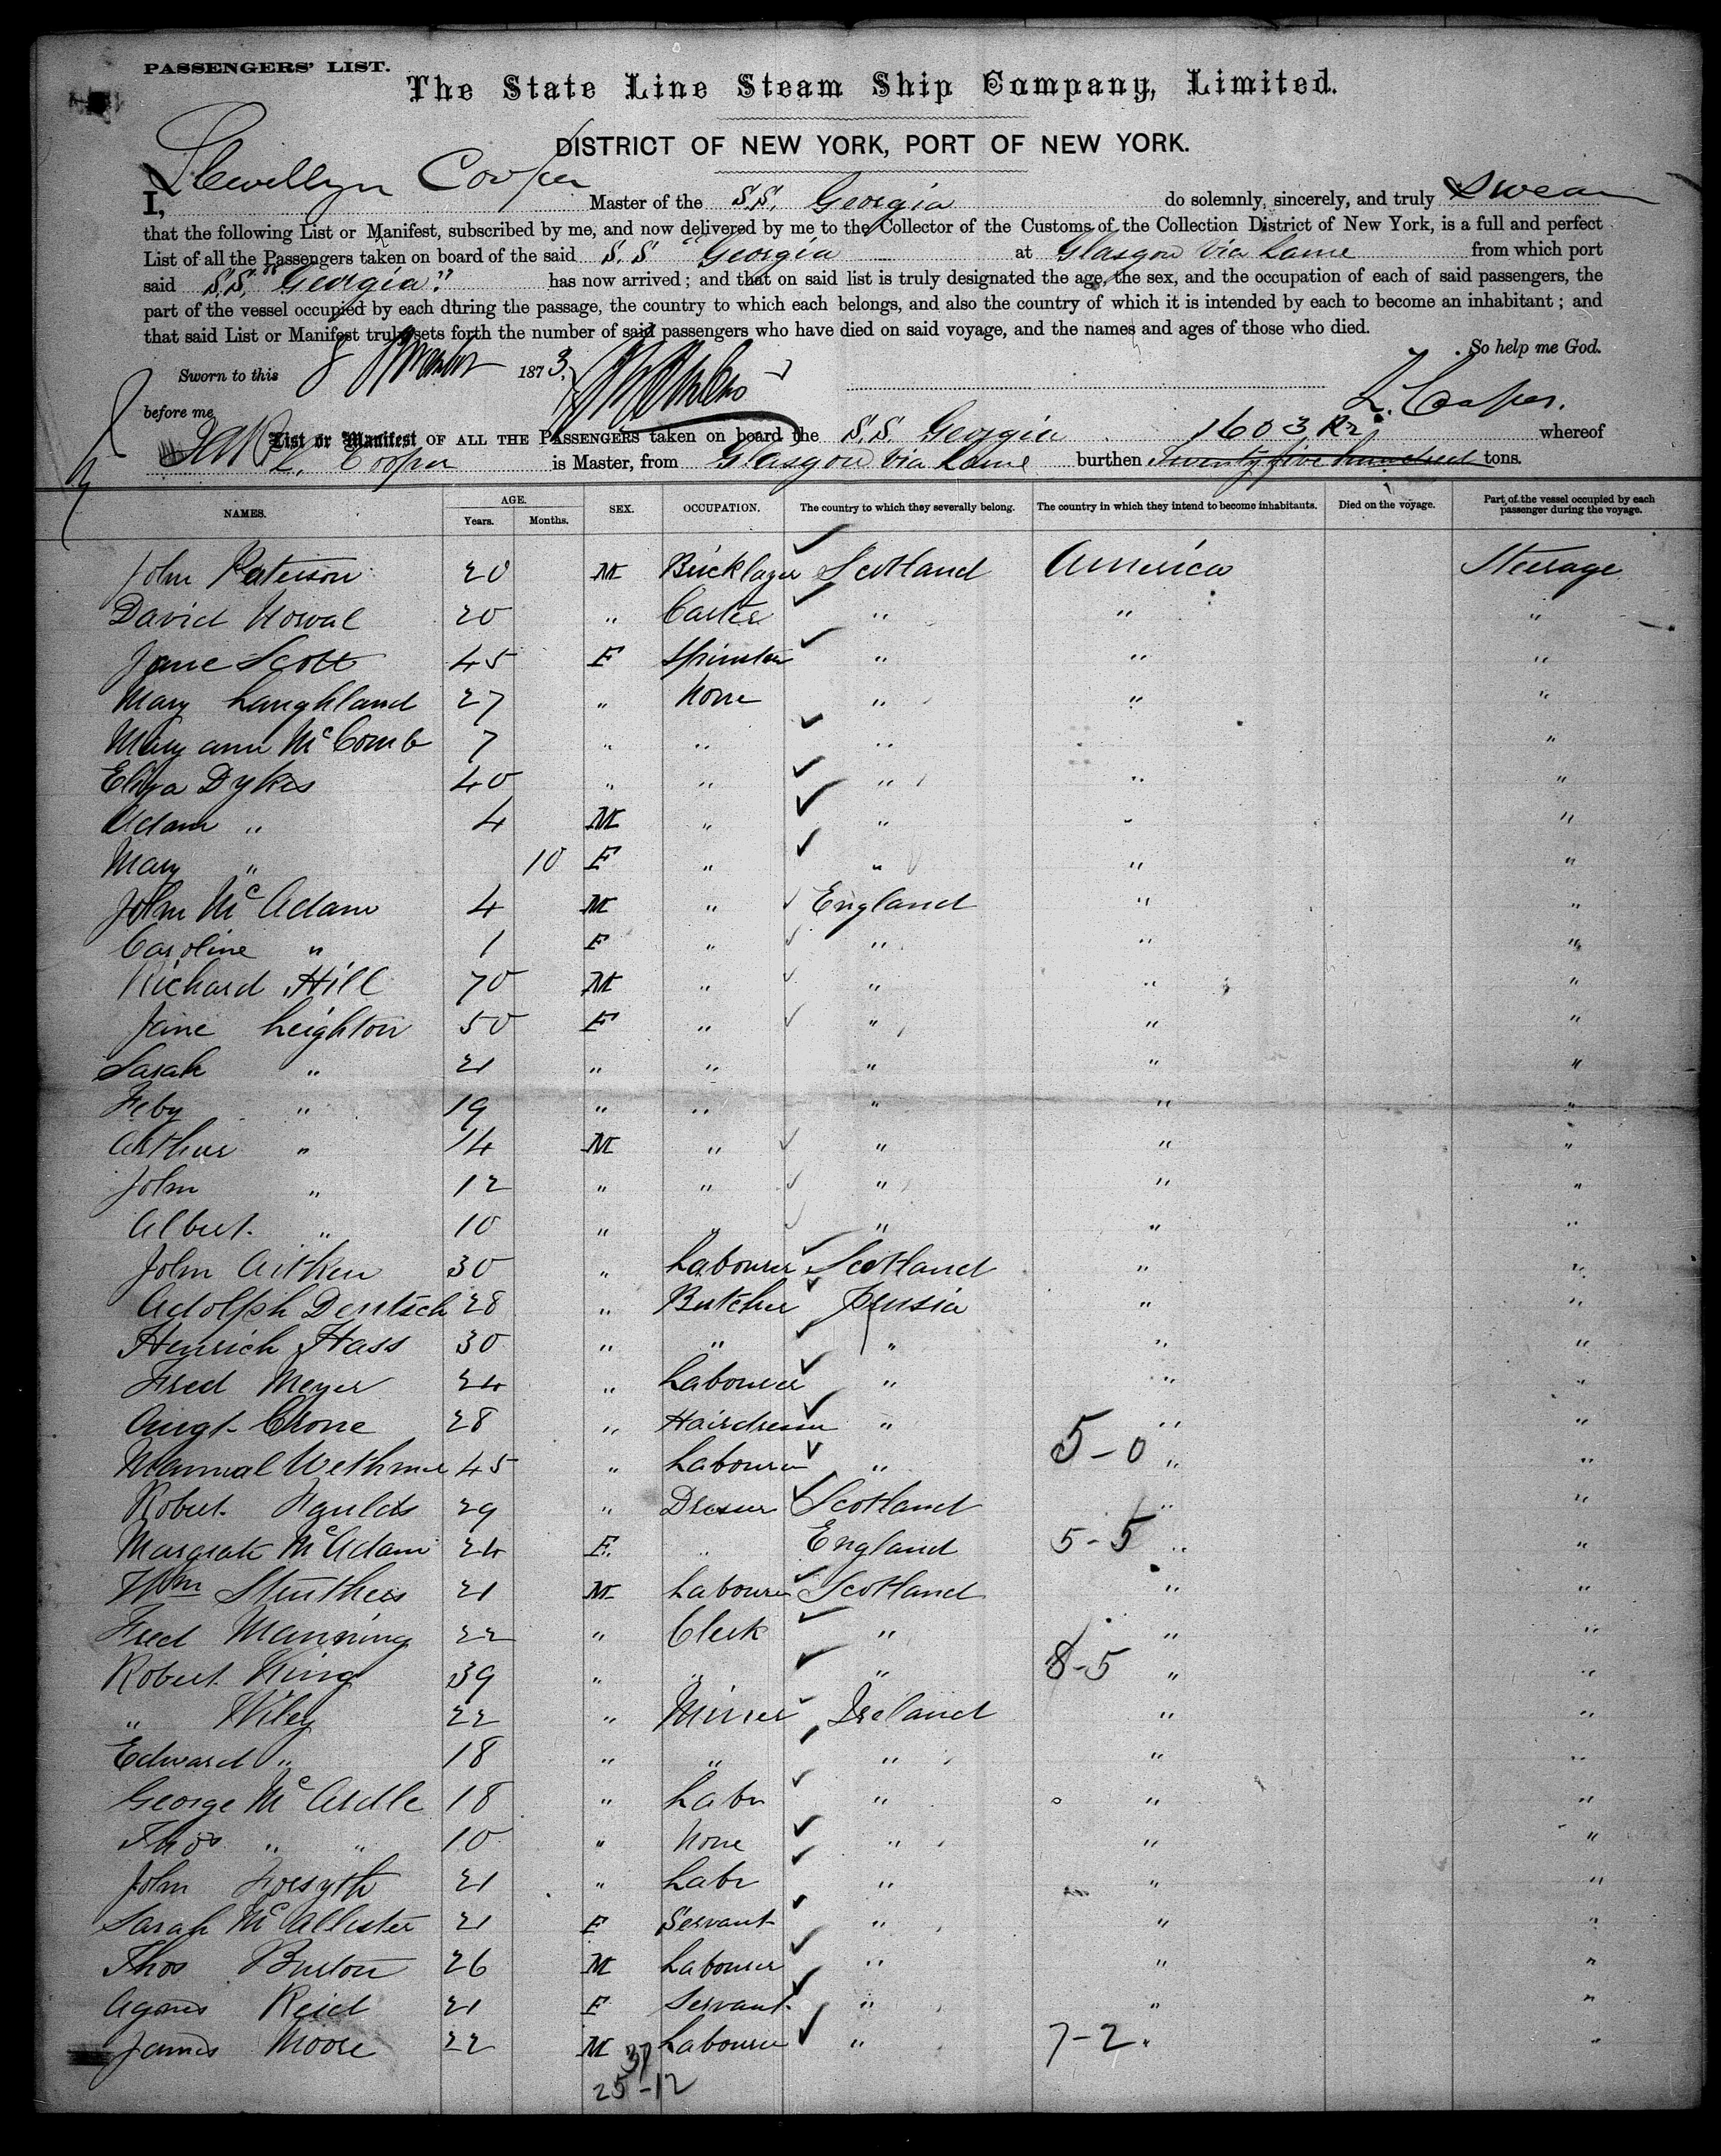 PASSENGERS' LIST.
The State Line Steam Ship Company, Limited.
DISTRICT OF NEW YORK, PORT OF NEW YORK.
I, Llewellyn Cooper Master of the S.S. Georgia do solemnly, sincerely, and truly swear
that the following List or Manifest, subscribed by me, and now delivered by me to the Collector of the Customs of the Collection District of New York, is a full and perfect
List of all the Passengers taken on board of the said S.S "Georgia at Glasgow via Larne from which port
said S.S. "Georgia" has now arrived; and that on said list is truly designated the age, the sex, and the occupation of each of said passengers, the
part of the vessel occupied by each during the passage, the country to which each belongs, and also the country of which it is intended by each to become an inhabitant; and
that said List or Manifest truly sets forth the number of said passengers who have died on said voyage, and the names and ages of those who died.
So help me God.
Sworn to this 8 1873.
before me L. Cooper.
List or Manifest OF ALL THE PASSENGERS taken on board the S.S. Georgia 1603 whereof
L. Cooper is Master, from Glasgow via Larne burthen Twenty five hundred tons.
NAMES. AGE. Years. Months. SEX. OCCUPATION. The country to which they severally belong. The country in which they intend to become inhabitants. Died on the voyage. Part of the vessel occupied by each passenger during the voyage.
John Paterson 20 M Bricklayer Scotland America Steerage
David Howal 20 " Carter " " "
Jane Scott 45 F Spinster " " "
Mary Laughland 27 " None " " "
Mary ann McComb 7 " " " " "
Eliza Dykes 40 " " " " "
Adam " 4 M " " " "
Mary " 10 F " " " "
John McAdam 4 M " England " "
Caroline " 1 F " " " "
Richard Hill 70 M " " " "
Jane Leighton 50 F " " " "
Sarah " 21 " " " " "
Feby " 19 " " " " "
Arthur " 14 M " " " "
John " 12 " " " " "
Albert " 10 " " " " "
John Aitken 30 " Labourer Scotland " "
Adolph Deutsch 28 " Butcher Prusia " "
Henrich Hass 30 " " " " "
Fred Meyer 24 " Labourer " " "
Augt Crone 28 " Hairdresser " 5-0 " "
Manual Wethmer 45 " Labourer " " "
Robert Faulds 29 " Dresser Scotland " "
Margrate McAdam 24 F " England 5-5 " "
Wm Struthers 21 M Labourer Scotland " "
Fred Manning 22 " Clerk " " "
Robert King 39 " " " 8-5 " "
" Wiley 22 " Minrer Ireland " "
Edward " 18 " " " " "
George McArdle 18 " Labr " " "
Thos " " 10 " None " " "
John Forsyth 21 " Labr " " "
Sarah McAllister 21 F Servant " " "
Thos Burton 26 M Labourer " " "
Agnes Reid 21 F Servant " " "
James Moore 22 M Labourer " 7-2 " "
37
25-12